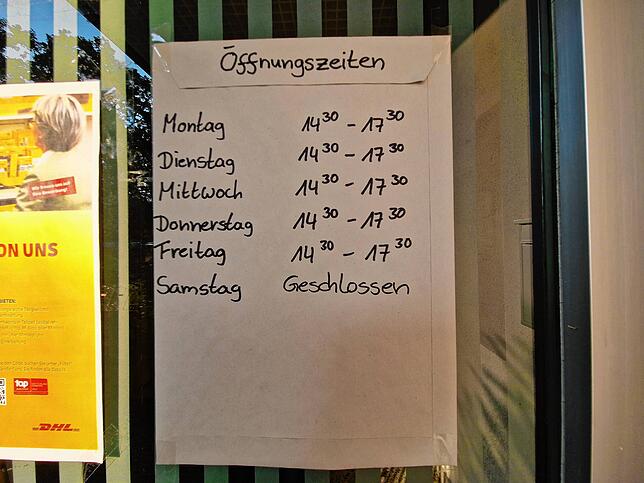 Öffnungszeiten
Montag 14³⁰ - 17³⁰
Dienstag 14³⁰ - 17³⁰
Mittwoch 14³⁰ - 17³⁰
Donnerstag 14³⁰ - 17³⁰
Freitag 14³⁰ - 17³⁰
Samstag Geschlossen
ON UNS
top
DHL